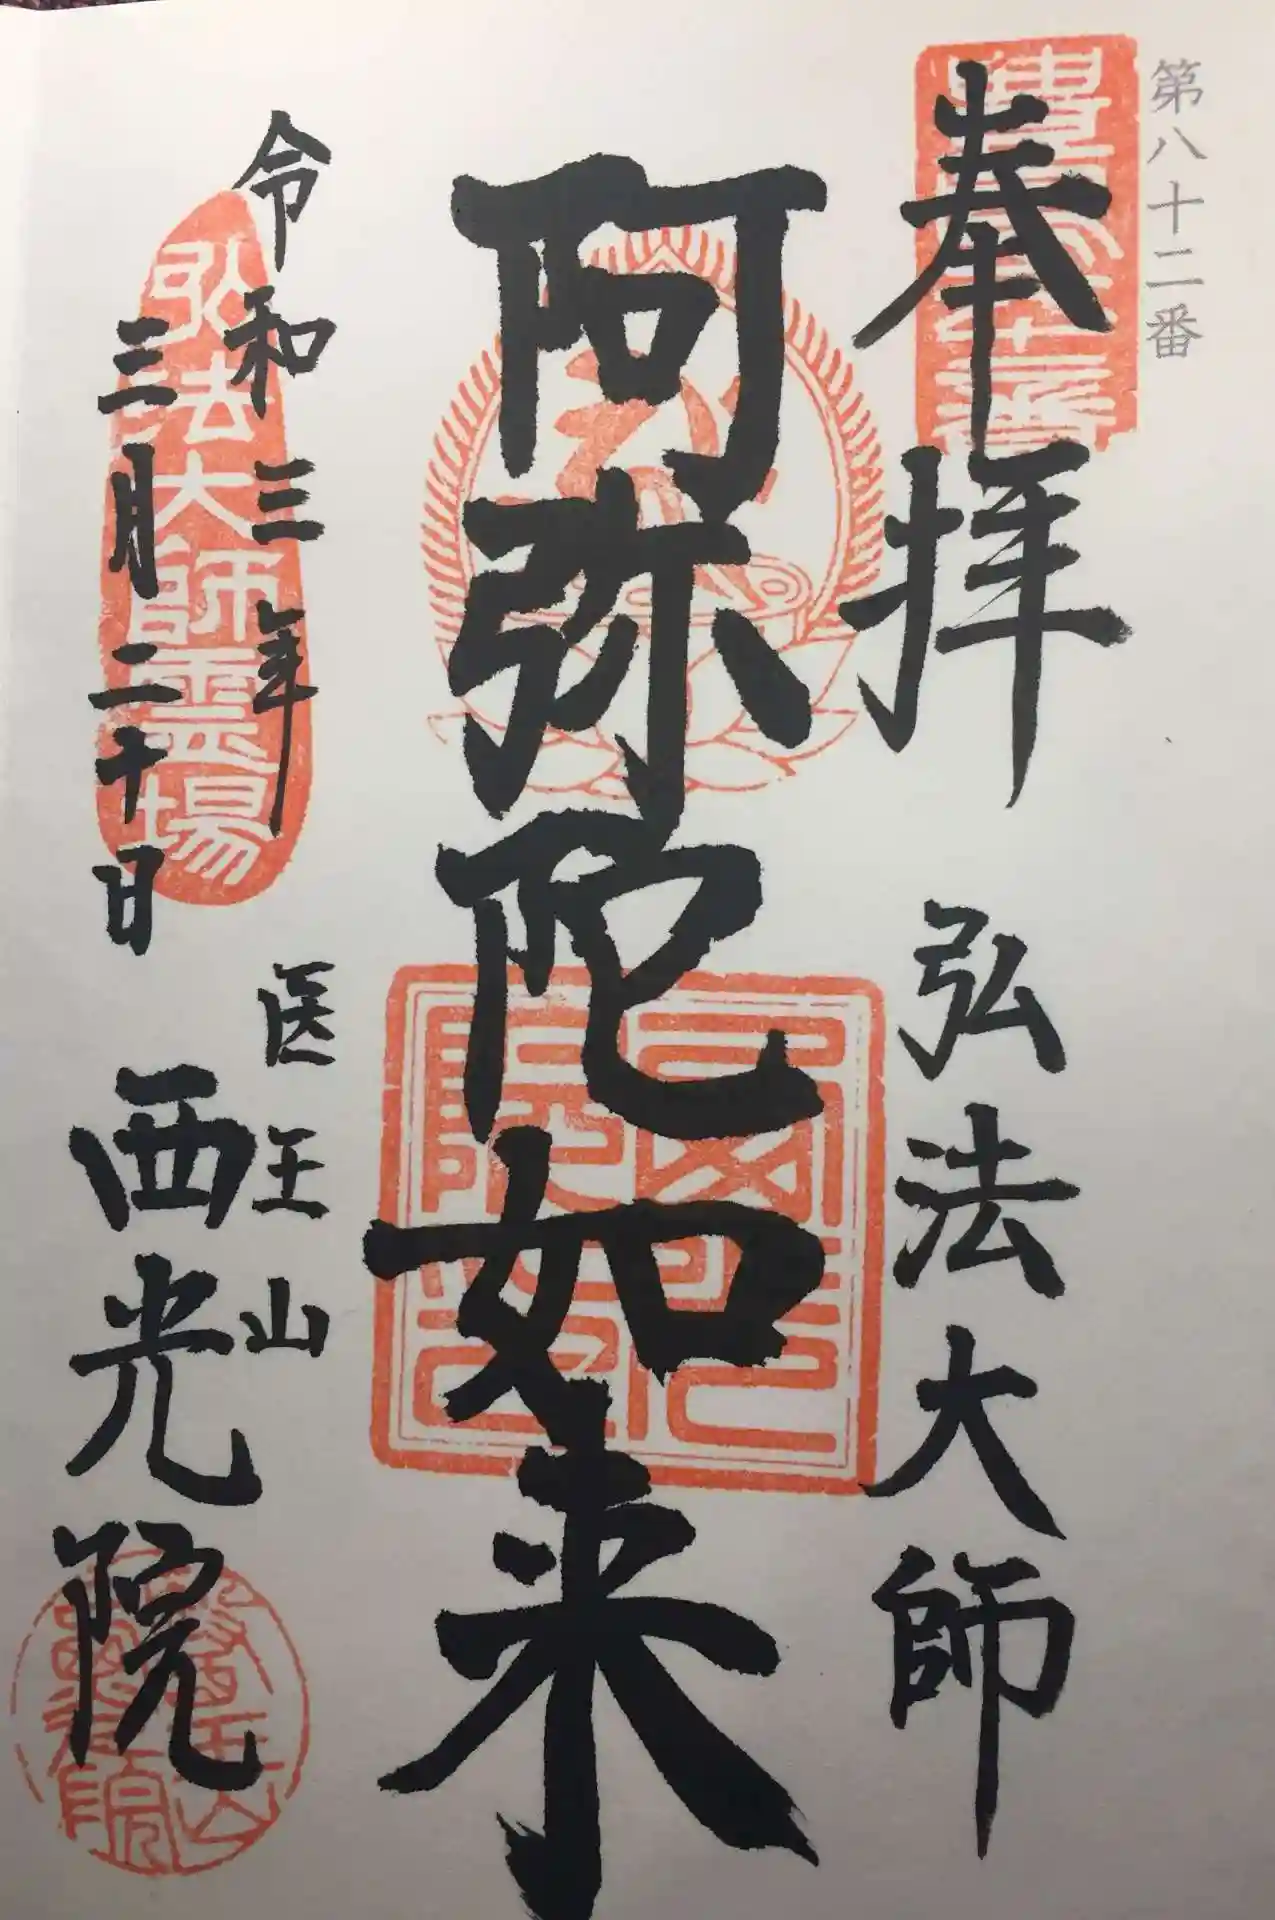 第八十二番
奉拝
弘法大師
阿弥陀如来
令和三年
三月二十日
弘法大師霊場
医王山
西光院